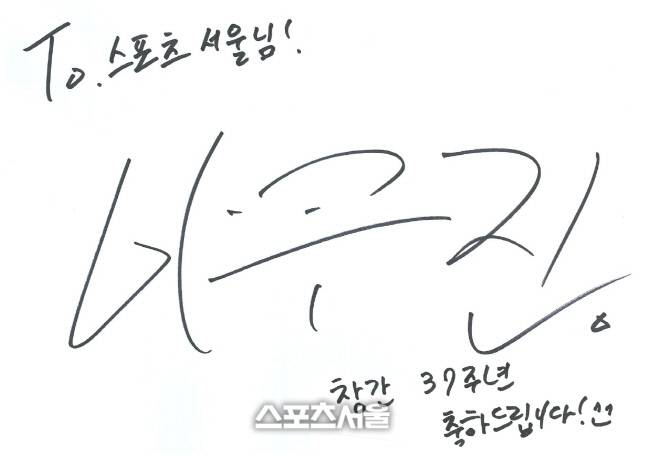 To. 스포츠서울님!
창간 37주년
축하드립니다!
스포츠서울